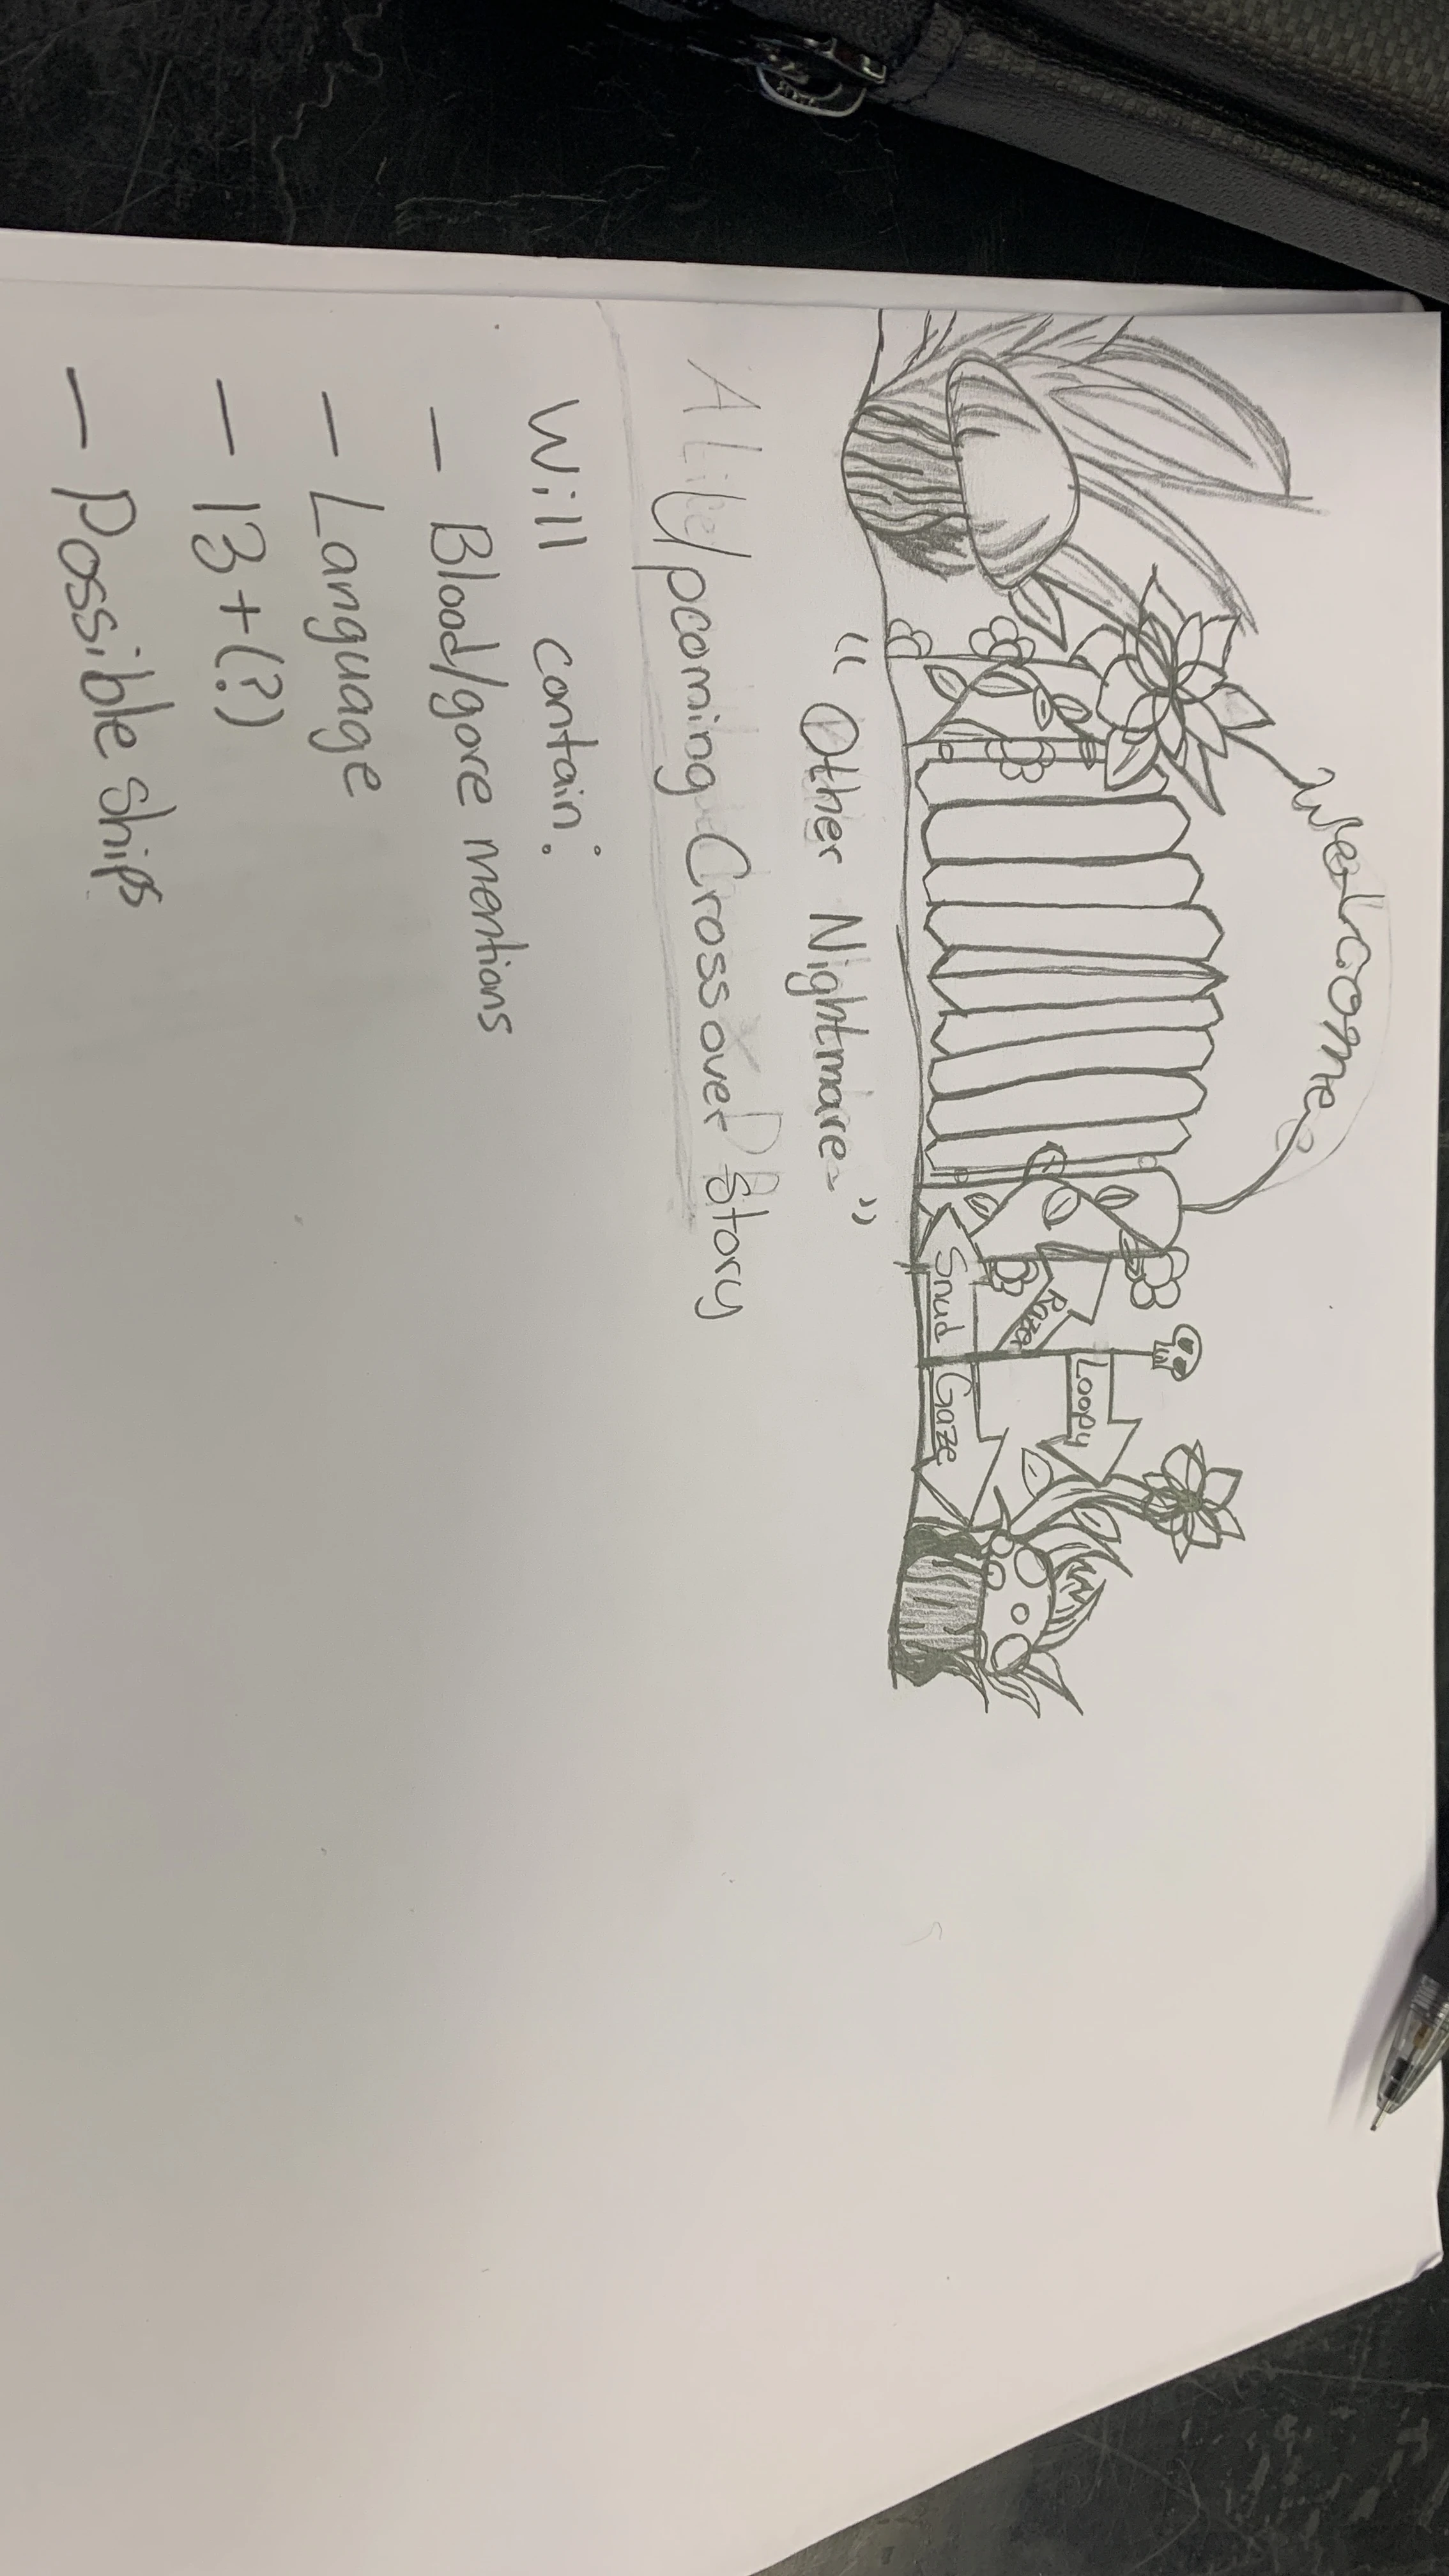 Welcome
Loopy
Razer
Snud
Gaze
"Other Nightmare-"
Upcoming Crossover Story
Will contain:
- Blood/gore mentions
- Language
- 13+(?)
- Possible ships